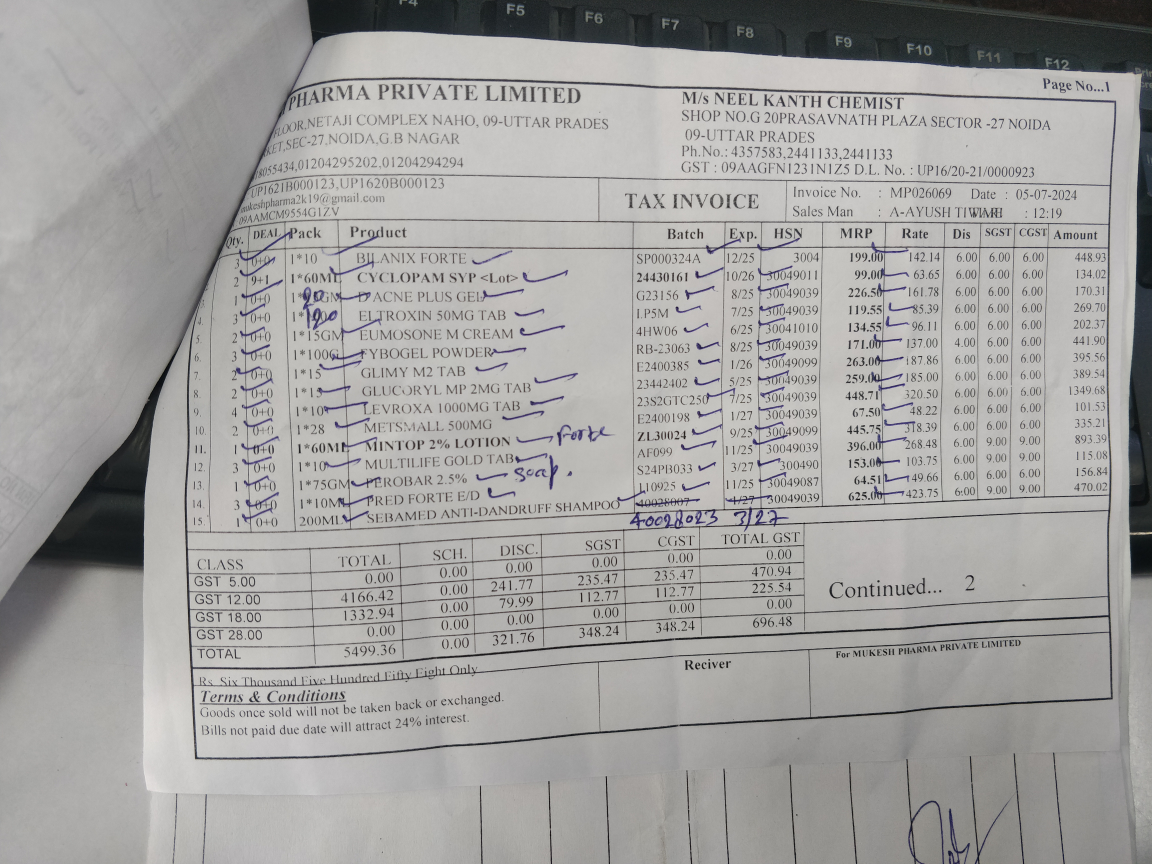 F4 F5 F6 F7 F8 F9 F10 F11 F12
Page No...1
PHARMA PRIVATE LIMITED
FLOOR,NETAJI COMPLEX NAHO, 09-UTTAR PRADES
KET,SEC-27,NOIDA,G.B NAGAR
8055434,01204295202,01204294294
UP1621B000123,UP1620B000123
mukeshpharma2k19@gmail.com
09AAMCM9554G1ZV
M/s NEEL KANTH CHEMIST
SHOP NO.G 20PRASAVNATH PLAZA SECTOR -27 NOIDA
09-UTTAR PRADES
Ph.No.: 4357583,2441133,2441133
GST : 09AAGFN1231N1Z5 D.L. No. : UP16/20-21/0000923
TAX INVOICE
Invoice No. : MP026069 Date : 05-07-2024
Sales Man : A-AYUSH : 12:19
Qty. DEAL Pack Product Batch Exp. HSN MRP Rate Dis SGST CGST Amount
3 0+0 1*10 BILANIX FORTE SP000324A 12/25 3004 199.00 142.14 6.00 6.00 6.00 448.93
2 9+1 1*60ML CYCLOPAM SYP <Lot> 24430161 10/26 30049011 99.00 63.65 6.00 6.00 6.00 134.02
3. 1 0+0 20 D ACNE PLUS GEL G23156 8/25 30049039 226.50 161.78 6.00 6.00 6.00 170.31
4. 3 0+0 120 ELTROXIN 50MG TAB LP5M 7/25 30049039 119.55 85.39 6.00 6.00 6.00 269.70
5. 2 0+0 1*15GM EUMOSONE M CREAM 4HW06 6/25 30041010 134.55 96.11 6.00 6.00 6.00 202.37
6. 3 0+0 1*100G FYBOGEL POWDER RB-23063 8/25 30049039 171.00 137.00 4.00 6.00 6.00 441.90
7. 2 0+0 1*15 GLIMY M2 TAB E2400385 1/26 30049099 263.00 187.86 6.00 6.00 6.00 395.56
8. 2 0+0 1*15 GLUCORYL MP 2MG TAB 23442402 5/25 30049039 259.00 185.00 6.00 6.00 6.00 389.54
9. 4 0+0 1*10 LEVROXA 1000MG TAB 23S2GTC250 7/25 30049039 448.71 320.50 6.00 6.00 6.00 1349.68
10. 2 0+0 1*28 METSMALL 500MG E2400198 1/27 30049039 67.50 48.22 6.00 6.00 6.00 101.53
11. 1 0+0 1*60ML MINTOP 2% LOTION Forte ZL30024 9/25 30049099 445.75 318.39 6.00 6.00 6.00 335.21
12. 3 0+0 1*10 MULTILIFE GOLD TAB AF099 11/25 30049039 396.00 268.48 6.00 9.00 9.00 893.39
13. 1 0+0 1*75GM PEROBAR 2.5% Soap. S24PB033 3/27 300490 153.00 103.75 6.00 9.00 9.00 115.08
14. 3 0+0 1*10ML PRED FORTE E/D 11/25 30049087 64.51 49.66 6.00 9.00 9.00 156.84
15. 1 0+0 200ML SEBAMED ANTI-DANDRUFF SHAMPOO 40028007 4/27 30049039 625.00 423.75 6.00 9.00 9.00 470.02
40028023 3/27
CLASS TOTAL SCH. DISC. SGST CGST TOTAL GST
GST 5.00 0.00 0.00 0.00 0.00 0.00 0.00
GST 12.00 4166.42 0.00 241.77 235.47 235.47 470.94
GST 18.00 1332.94 0.00 79.99 112.77 112.77 225.54
GST 28.00 0.00 0.00 0.00 0.00 0.00 0.00
TOTAL 5499.36 0.00 321.76 348.24 348.24 696.48
Continued... 2
Rs. Six Thousand Five Hundred Fifty Eight Only
Terms & Conditions
Goods once sold will not be taken back or exchanged.
Bills not paid due date will attract 24% interest.
Reciver
For MUKESH PHARMA PRIVATE LIMITED